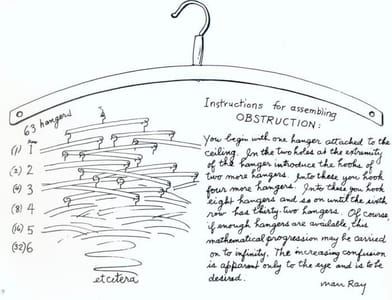 Instructions for assembling
OBSTRUCTION:
63 hangers
Row
(1) 1
(2) 2
(4) 3
(8) 4
(16) 5
(32) 6
etcetera
You begin with one hanger attached to the
ceiling. In the two holes at the extremity
of the hanger introduce the hooks of
two more hangers. Into these you hook
four more hangers. Into these you hook
eight hangers and so on until the sixth
row has thirty-two hangers. Of course,
if enough hangers are available, this
mathematical progression may be carried
on to infinity. The increasing confusion
is apparent only to the eye and is to be
desired.
Man Ray